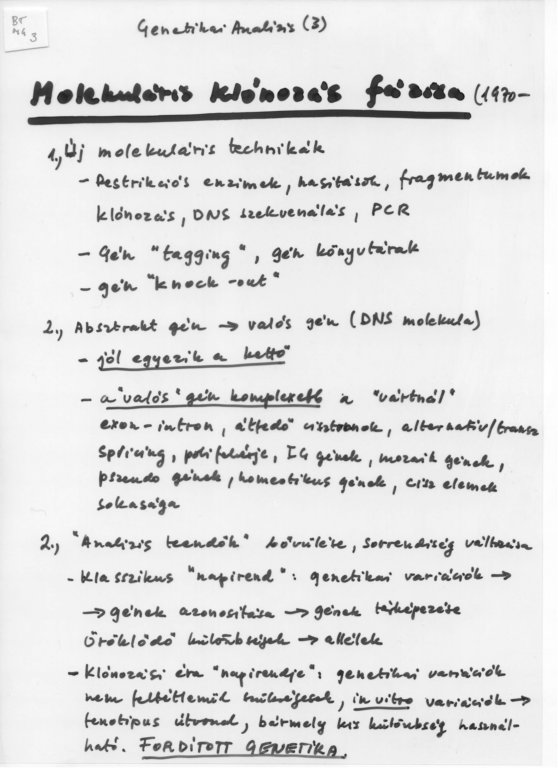 BT
MG 3
Genetikai Analízis (3)
Molekuláris klónozás fázisa (1970–
1., Új molekuláris technikák
– Restrikciós enzimek, hasítások, fragmentumok
klónozás, DNS szekvenálás, PCR
– Gén "tagging", gén könyvtárak
– gén "knock-out"
2., Absztrakt gén → valós gén (DNS molekula)
– jól egyezik a kettő
– a "valós" gén komplexebb a "vártnál"
exon-intron, átfedő cisztronok, alternatív/transz
splicing, polifehérje, IG gének, mozaik gének,
pszeudo gének, homeotikus gének, cisz elemek
sokasága
2., "Analízis teendők" bővülése, sorrendiség változása
– Klasszikus "napirend": genetikai variációk →
→ gének azonosítása → gének térképezése
öröklődő különbségek → allélek
– Klónozási éra "napirendje": genetikai variációk
nem feltétlenül szükségesek, in vitro variációk →
fenotípus útvonal, bármely kis különbség használ-
ható. FORDÍTOTT GENETIKA.